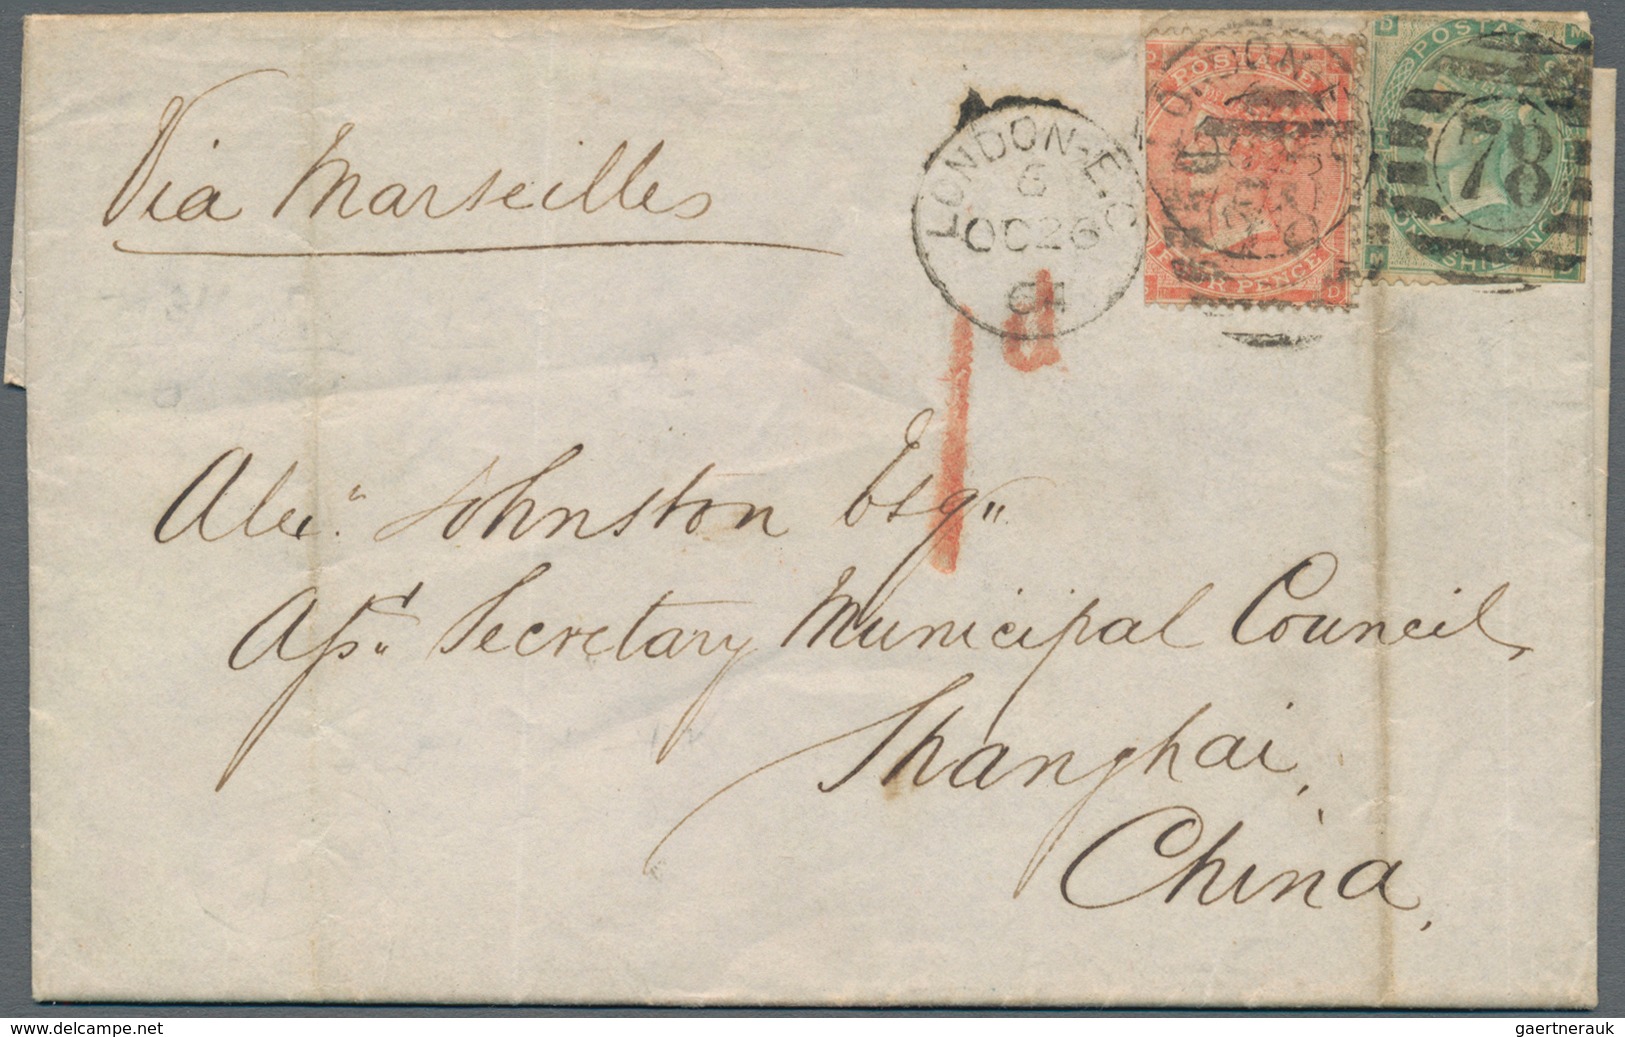 Via Marseilles
LONDON-E.C
6
OC 26
64
POSTAGE
FOUR PENCE
D
POSTAGE
ONE SHILLING
D
M
78
1d
Alexr. Johnston Esqr
Asst. Secretary Municipal Council,
Shanghai,
China,
www.delcampe.net
gaertnerauk